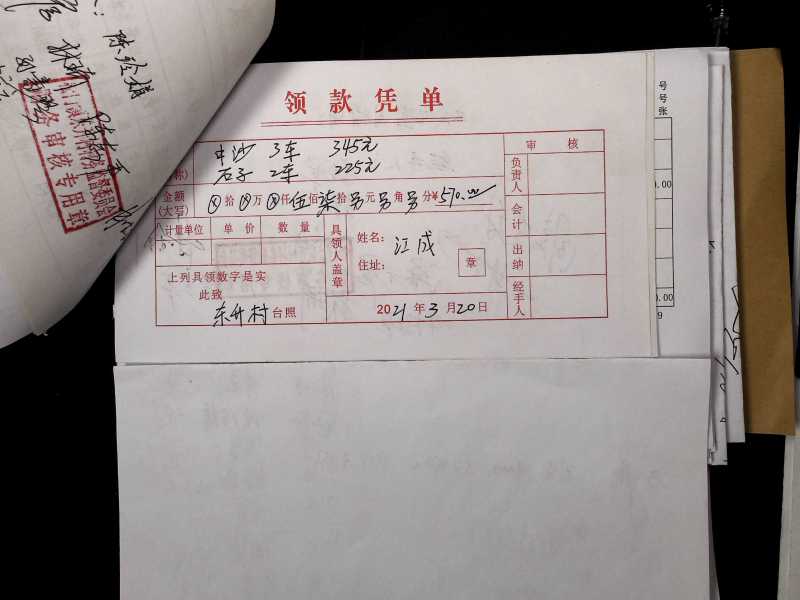 领款凭单
中沙 3车 345元
石子 2车 225元
金额
(大写) ⊗拾⊗万⊗仟伍佰柒拾另元另角另分¥570.00
计量单位 单价 数量
上列具领数字是实
此致
东升村台照
具领人盖章
姓名: 江成
住址:
章
2021年3月20日
审核
负责人
会计
出纳
经手人
号
号
张
0.00
0.00
9
务审核专用章